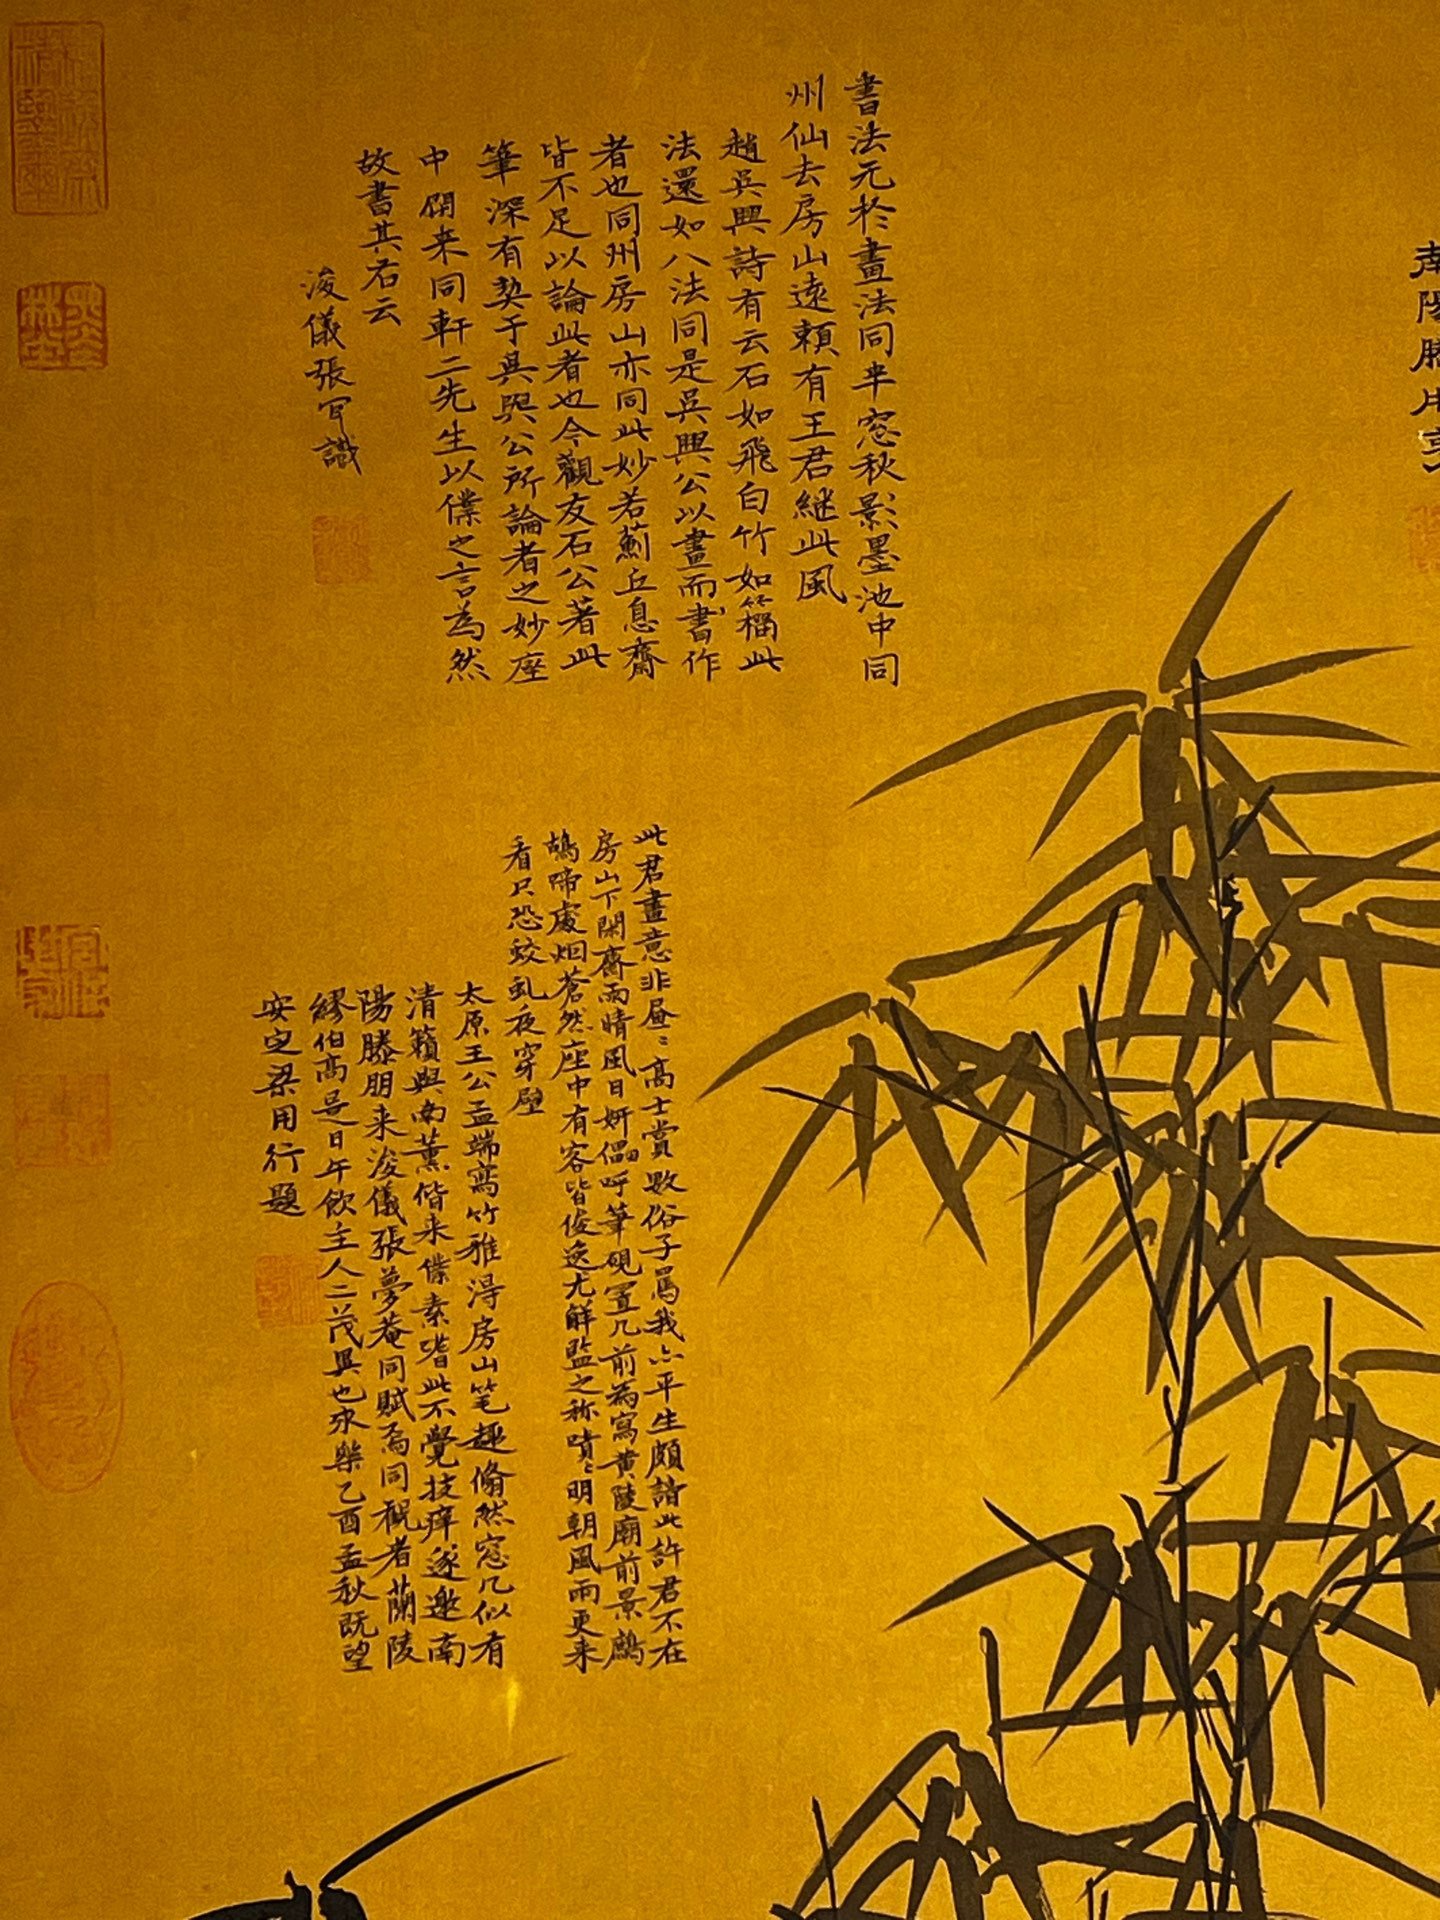 書法元於畫法同半窓秋影墨池中同
州仙去房山遠頼有王君継此風
趙吳興詩有云石如飛白竹如籀此
法還如八法同是吳興公以畫而書作
者也同州房山亦同此妙若薊丘息齋
皆不足以論此者也今觀友石公著此
筆深有契于吳興公所論者之妙座
中開来同軒二先生以僕之言為然
故書其右云
浚儀張肎識
此君畫意非昼〻高士賞歟俗子罵我亦平生頗諳此許君不在
房山下閑齋雨晴風日妍儡呼筆硯置几前為寫黄陵廟前景鷓
鴣啼處烟蒼然座中有客皆俊逸尤解監之称嘖〻明朝風雨更来
看只恐蛟虬夜穿壁
太原王公孟端寫竹雅淂房山笔趣翛然窓几似有
清籟與南薫偕来僕素嗜此不覺技痒遂邀南
陽滕朋来浚儀張夢菴同賦焉同観者蘭陵
繆伯高是日午飲主人二茂異也永樂乙酉孟秋既望
安定梁用行題
南陽滕用亨